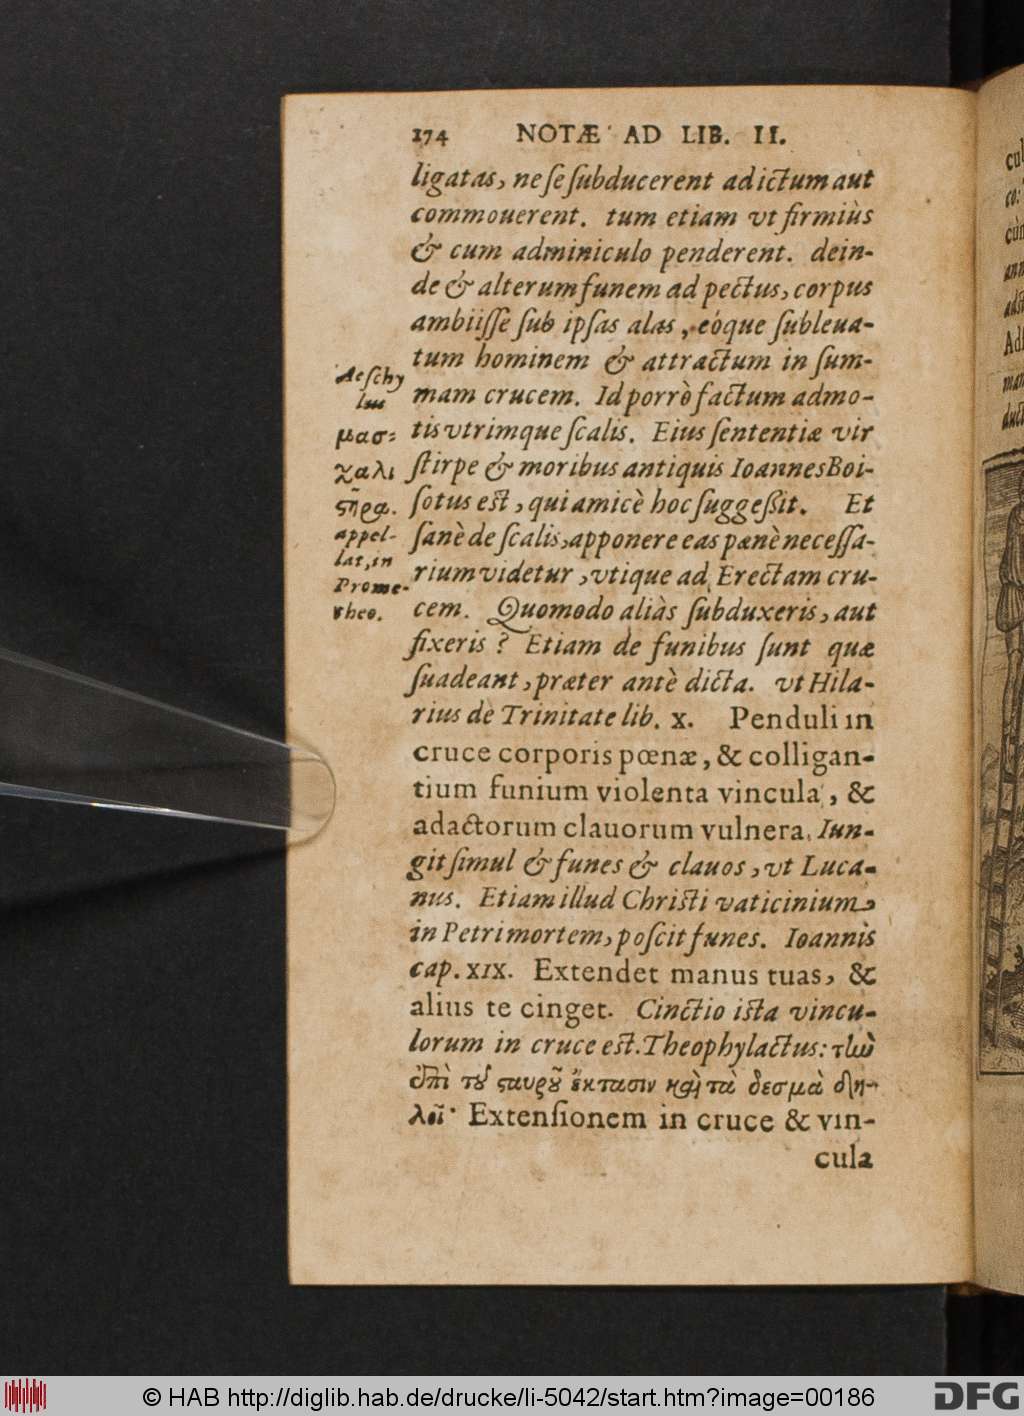 174 NOTÆ AD LIB. II.
ligatas, ne se subducerent ad ictum aut
commouerent. tum etiam vt firmiùs
& cum adminiculo penderent. dein-
de & alterum funem ad pectus, corpus
ambiisse sub ipsas alas, eóque subleua-
tum hominem & attractum in sum-
mam crucem. Id porrò factum admo-
tis vtrimque scalis. Eius sententiæ vir
stirpe & moribus antiquis Ioannes Boi-
sotus est, qui amicè hoc suggeßit. Et
sanè de scalis, apponere eas pænè necessa-
rium videtur, vtique ad Erectam cru-
cem. Quomodo aliàs subduxeris, aut
fixeris? Etiam de funibus sunt quæ
suadeant, præter antè dicta. vt Hila-
rius de Trinitate lib. x. Penduli in
cruce corporis pœnæ, & colligan-
tium funium violenta vincula, &
adactorum clauorum vulnera. Iun-
git simul & funes & clauos, vt Luca-
nus. Etiam illud Christi vaticinium,
in Petri mortem, poscit funes. Ioannis
cap. XIX. Extendet manus tuas, &
alius te cinget. Cinctio ista vincu-
lorum in cruce est. Theophylactus: τὼ
ἐπὶ τοῦ σταυροῦ ἔκτασιν καὶ τὰ δεσμὰ δη-
λοῖ· Extensionem in cruce & vin-
cula
Aeschy
lus
μασ-
χαλι
στῆρα.
appel-
lat, in
Prome-
theo.
cul
co:
cùm
ann
adst
Adh
man
duct
© HAB http://diglib.hab.de/drucke/li-5042/start.htm?image=00186
DFG